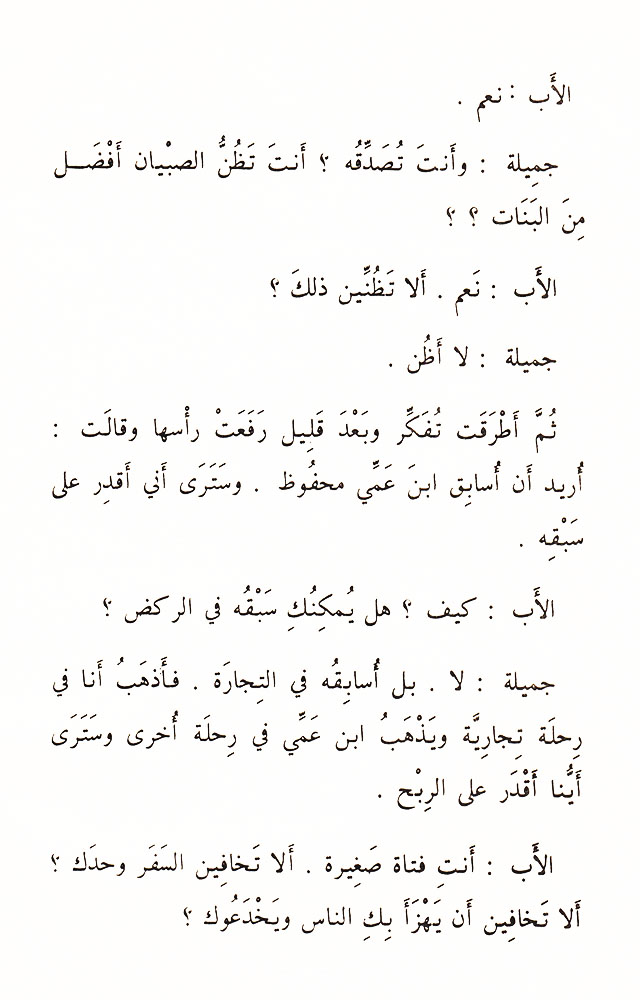 الأَب : نعم .
جمِيلة : وأَنتَ تُصَدِّقُه ؟ أَنتَ تَظُنُّ الصبْيان أَفْضَــل
مِنَ البَنَات ؟ ؟
الأَب : نَعم . أَلا تَظُنِّين ذلكَ ؟
جميلة : لا أَظُن .
ثُمَّ أَطْرَقَت تُفَكِّر وبَعْدَ قَلِيل رَفَعَتْ رأْسها وقالَت :
أُريد أَن أُسابِق ابنَ عَمِّي محفُوظ . وسَتَرَى أَني أَقدِر على
سَبْقِه .
الأَب : كيف ؟ هل يُمكِنُكِ سَبْقُه في الركض ؟
جميلة : لا . بل أُسابِقُه في التِجارَة . فأَذهَبُ أَنا في
رِحلَة تِجارِيَّة ويَذْهَبُ ابن عَمِّي في رِحلَة أُخرى وسَتَرَى
أَيُّنا أَقْدَر على الرِبْح .
الأَب : أَنتِ فتاة صَغِيرة . أَلا تَخافِين السَفَر وحدَك ؟
أَلا تَخافِين أَن يَهْزَأَ بِكِ الناس ويَخْدَعُوك ؟